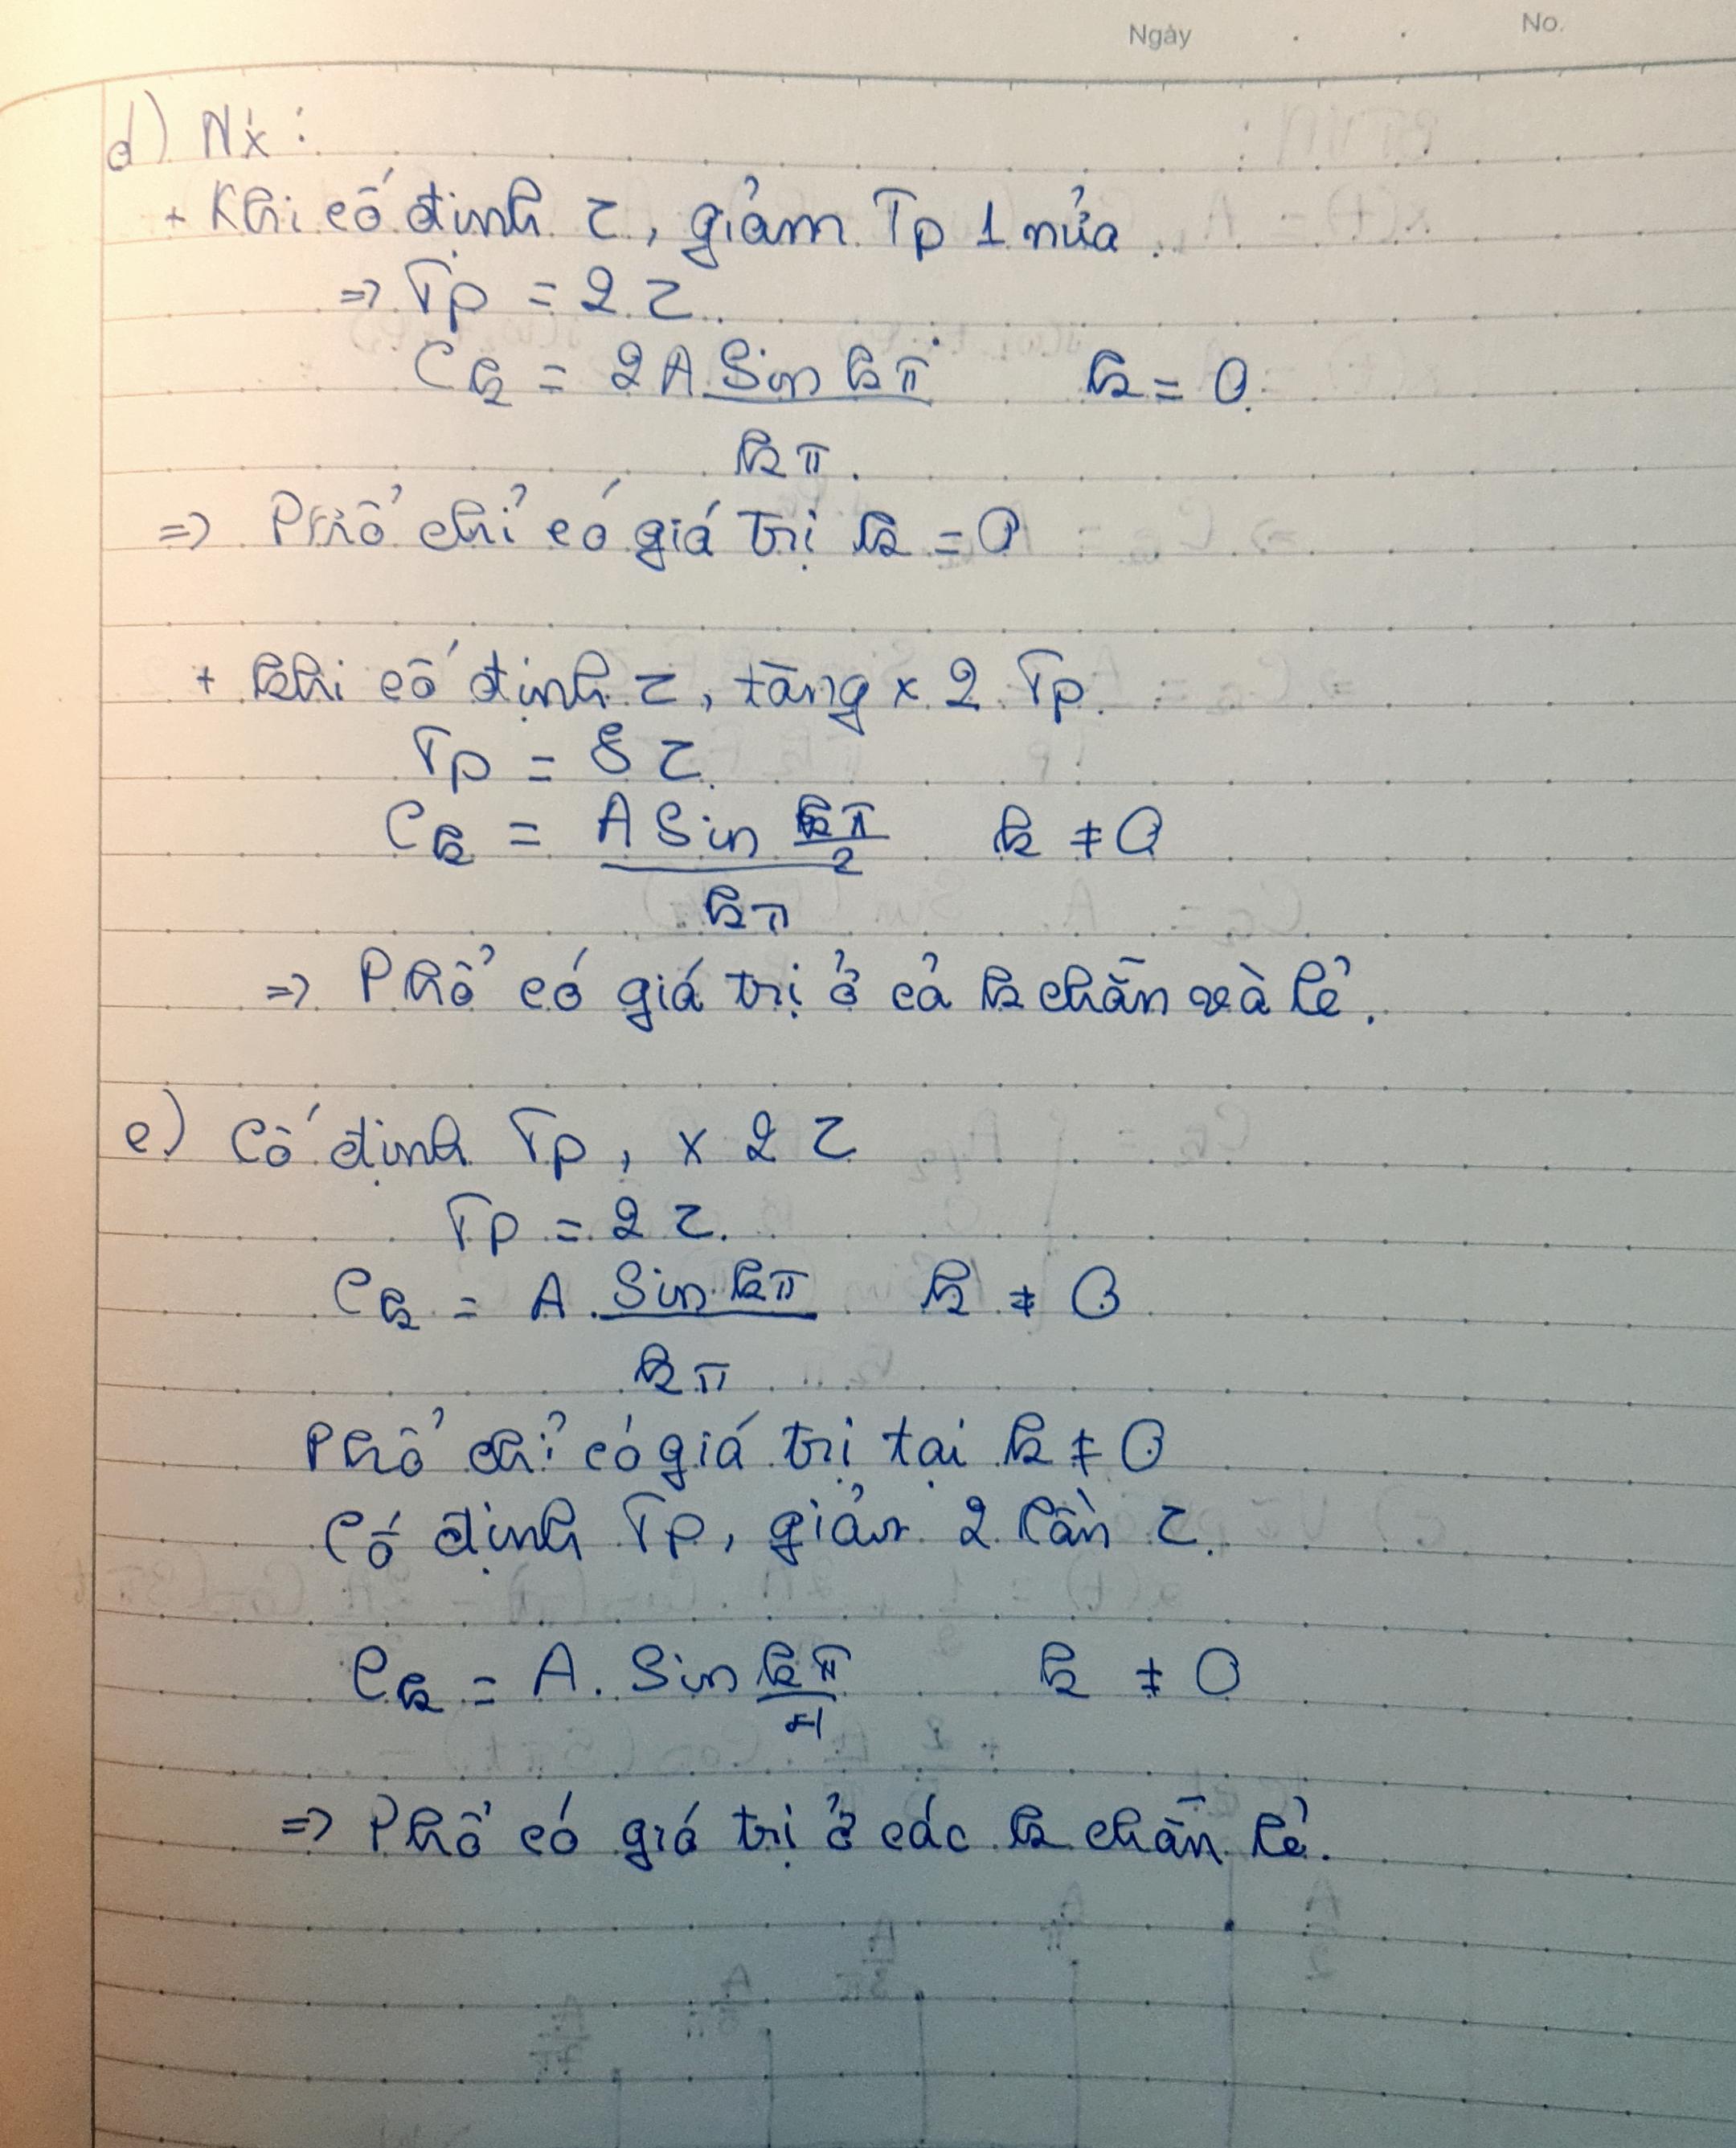 Ngày . . No.
d) Nx :
+ Khi cố định τ, giảm Tp 1 nửa.
=> Tp = 2 τ
Ck = 2A Sin kπ / kπ k = 0
=> Phổ chỉ có giá trị k = 0
+ khi cố định τ, tăng x 2 Tp.
Tp = 8 τ
Ck = A Sin kπ/2 / kπ k ≠ 0
=> Phổ có giá trị ở cả k chẵn và lẻ.
e) Cố định Tp, x 2 τ
Tp = 2 τ.
Ck = A. Sin kπ / kπ k ≠ 0
Phổ chỉ có giá trị tại k ≠ 0
Cố định Tp, 2 lần τ.
Ck = A. Sin kπ/4 k ≠ 0
=> Phổ có giá trị ở các k chẵn lẻ.